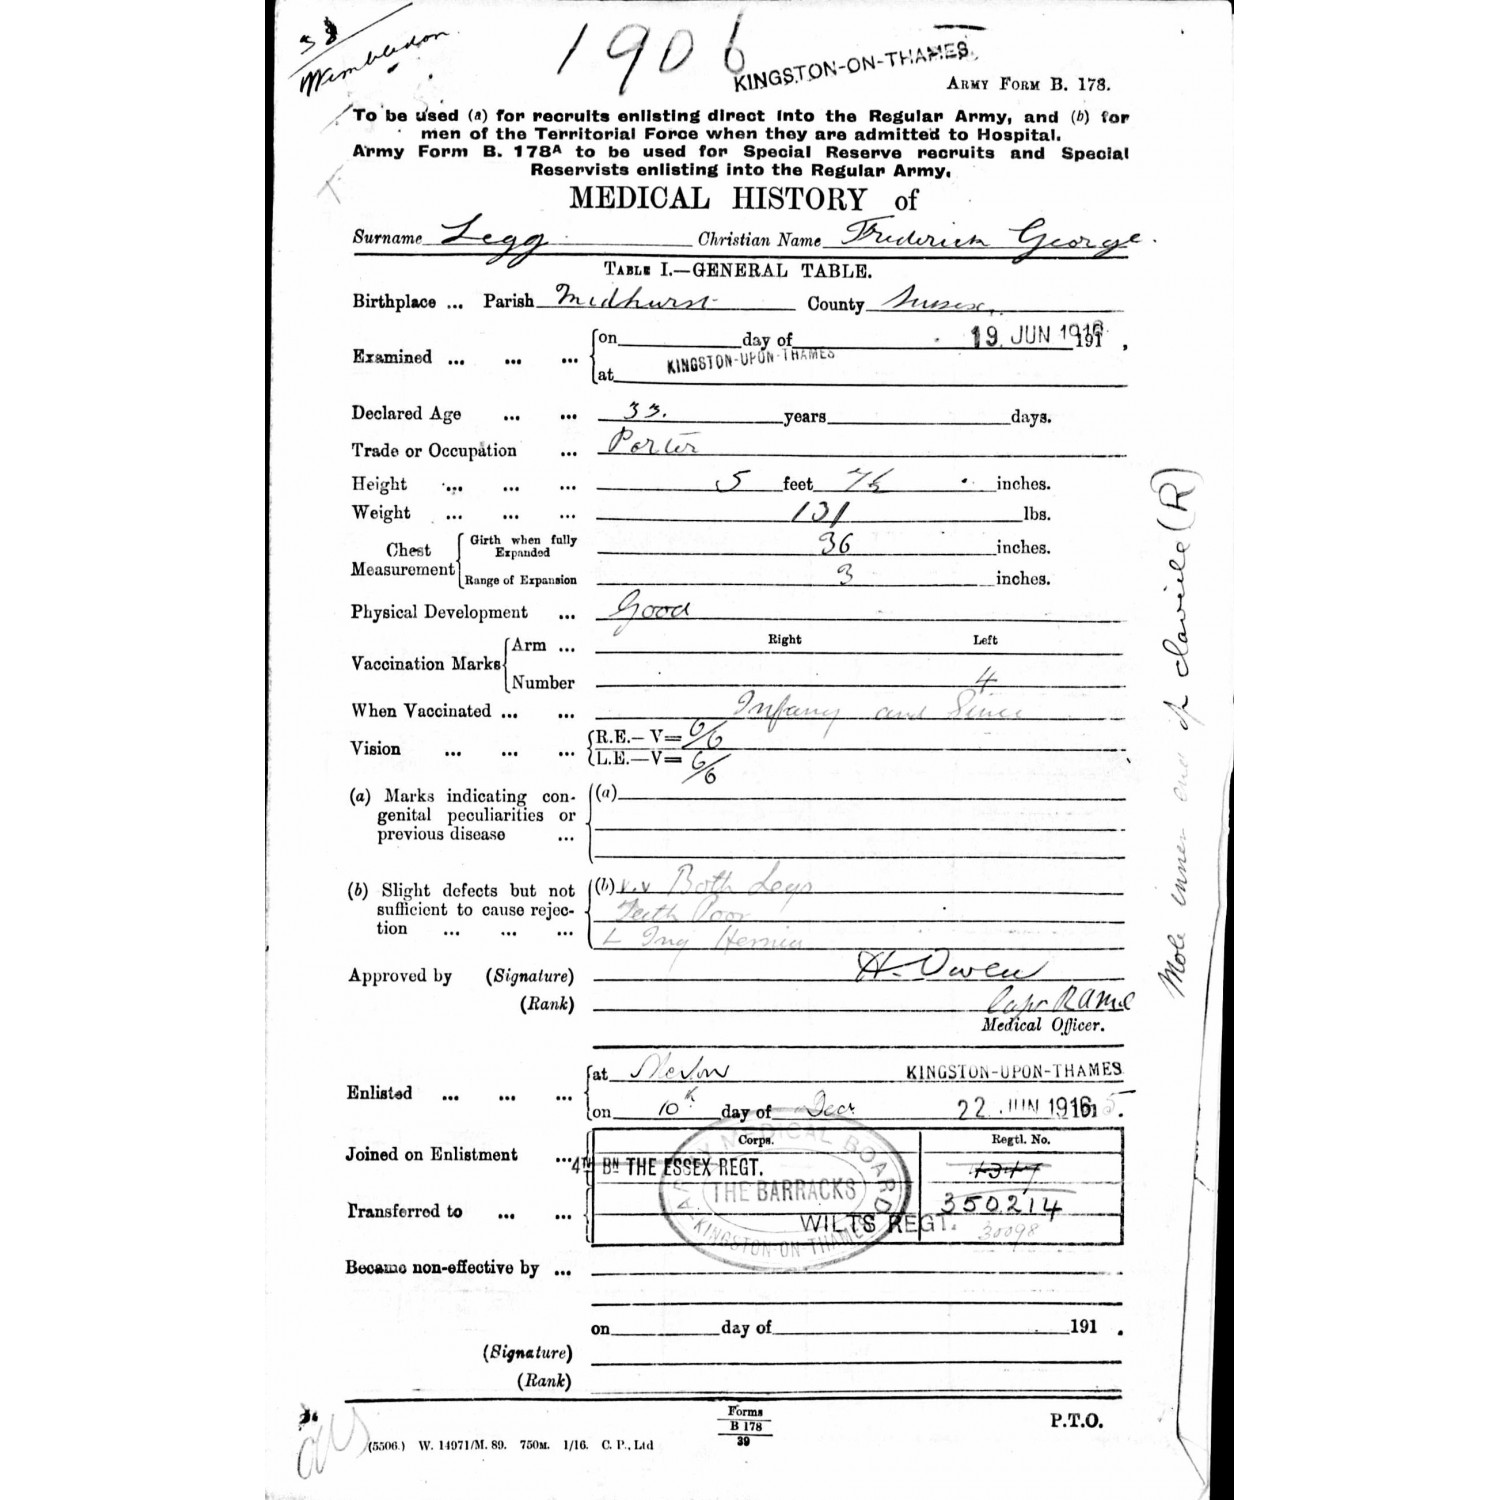 38
Wimbledon
1906
KINGSTON-ON-THAMES.
ARMY FORM B. 178.
To be used (a) for recruits enlisting direct into the Regular Army, and (b) for
men of the Territorial Force when they are admitted to Hospital.
Army Form B. 178A to be used for Special Reserve recruits and Special
Reservists enlisting into the Regular Army.
MEDICAL HISTORY of
Surname Legg Christian Name Frederick George.
TABLE I.—GENERAL TABLE.
Birthplace ... Parish Midhurst County Sussex.
Examined ... ... ... on day of 19 JUN 1916 191 ,
at KINGSTON-UPON-THAMES
Declared Age ... ... 33. years days.
Trade or Occupation ... Porter
Height ... ... ... 5 feet 7½ inches.
Weight ... ... ... 131 lbs.
Chest Measurement Girth when fully Expanded 36 inches.
Range of Expansion 3 inches.
Physical Development ... Good
Right Left
Vaccination Marks Arm ...
Number 4
When Vaccinated ... ... Infancy and Since
Vision ... ... ... R.E.— V= 6/6
L.E.—V= 6/6
(a) Marks indicating con- (a)
genital peculiarities or
previous disease ...
(b) Slight defects but not (b) v.v Both Legs
sufficient to cause rejec- Teeth Poor
tion ... ... ... L Ing Hernia
Approved by (Signature) H. Owen
(Rank) Capt RAMC
Medical Officer.
Mole inner end of clavicle (R)
Enlisted ... ... ... at KINGSTON-UPON-THAMES
on 10th day of Decr 22 JUN 1916 191 5.
Corps. Regtl. No.
Joined on Enlistment ... 4TH BN THE ESSEX REGT.
ARMY MEDICAL BOARD
THE BARRACKS
KINGSTON-ON-THAMES
Transferred to ... ... 350214
WILTS REGT. 30098
Became non-effective by ...
on day of 191 .
(Signature)
(Rank)
Forms
B 178
39
P.T.O.
(5506.) W. 14971/M. 89. 750M. 1/16. C. P., Ltd